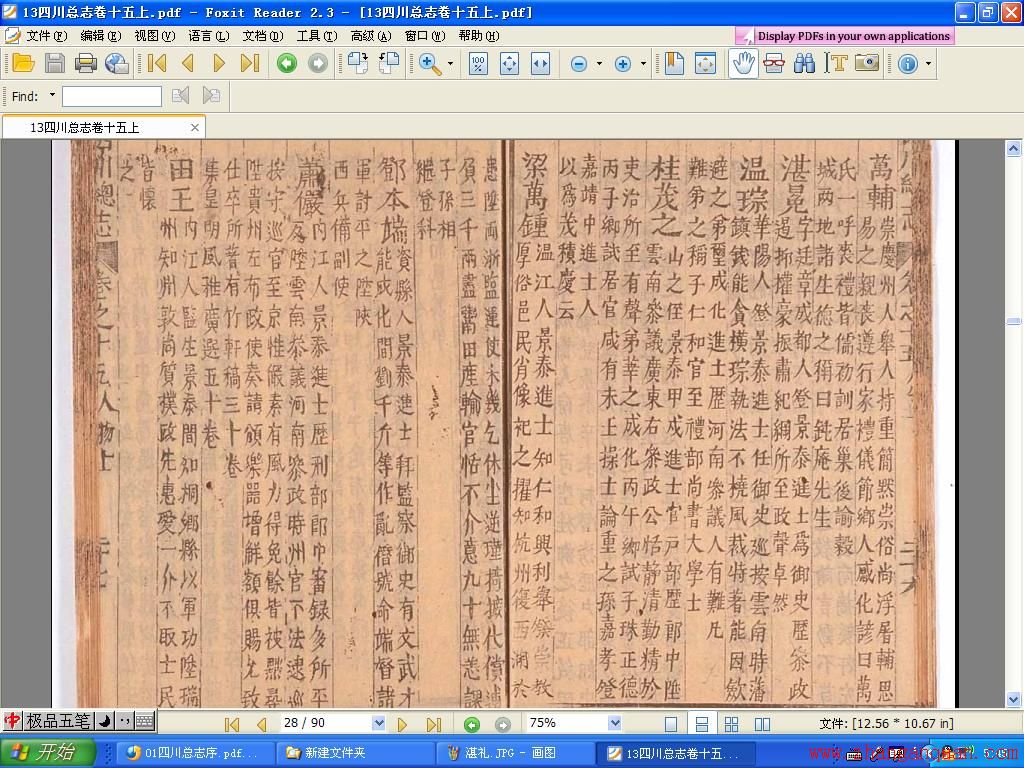 13四川总志卷十五上.pdf - Foxit Reader 2.3 - [13四川总志卷十五上.pdf]
文件(F) 编辑(E) 视图(V) 语言(L) 文档(D) 工具(T) 高级(A) 窗口(W) 帮助(H)
Display PDFs in your own applications
Find:
13四川总志卷十五上
萬輔崇慶州人舉人持重簡默崇俗尚浮屠輔思
易之親喪遵行家禮儀節鄉人感化諺曰萬
氏一呼喪禮者儒劾訓居巢後諭穀
城两地諸生德之稱曰鈍庵先生
湛晃字廷章成都人登景泰進士為御史歷叅政
逞抑權豪振肅紀綱所至政聲卓然
温琮華陽人登景泰進士任御史廵按雲南時藩
鎮錢能貪横琮執法不撓風裁特著能因歛
避之弟璽成化進士歷河南叅議人有難凢
難弟之稱子仁和官至禮部尚書大學士
桂茂之雲南叅議廣東右叅政公恬静清勤精於
山之侄景泰甲戌進士官戸部歷郎中陞
吏治所至有聲弟華之成化丙午鄉試子珠正德
丙子鄉試居官咸有未上操士論重之孫嘉孝登
嘉靖中進士人
以為茂積慶云
梁萬鍾温江人景泰進士知仁和興利舉祭崇教
厚俗邑民肖像祀之擢知杭州復西湖於
患陞兩浙
貟三千兩盡鬻田產輸官恬不介意九十無恙
子孫相
繼登科
鄧本端資縣人景泰進士拜監察御史有文武才
能成化間劉千斤等作亂僭號命端督諸
軍計平之陞陜
西兵備副使
蕭儼内江人景泰進士歷刑部郎中審録多所平
反陞雲南叅議河南叅政時州官不法逮巡
按守巡官至京惟儼素有風力得免餘皆被黜尋
陞貴州左布政使奏請頒樂噐增鮮額俱賜允致
仕卒所著有竹軒稿三十卷
集皇明風雅廣選五十卷
田王内江人監生景泰間知桐鄉縣以軍功陞瑞
州知州敦尚質樸政先惠愛一介不取士民
皆懷
之
川總志
卷之十五
人物
28 / 90
75%
文件: [12.56 * 10.67 in]
中 极品五笔
开始
01四川总志序.pdf...
新建文件夹
湛礼.JPG - 画图
13四川总志卷十五...